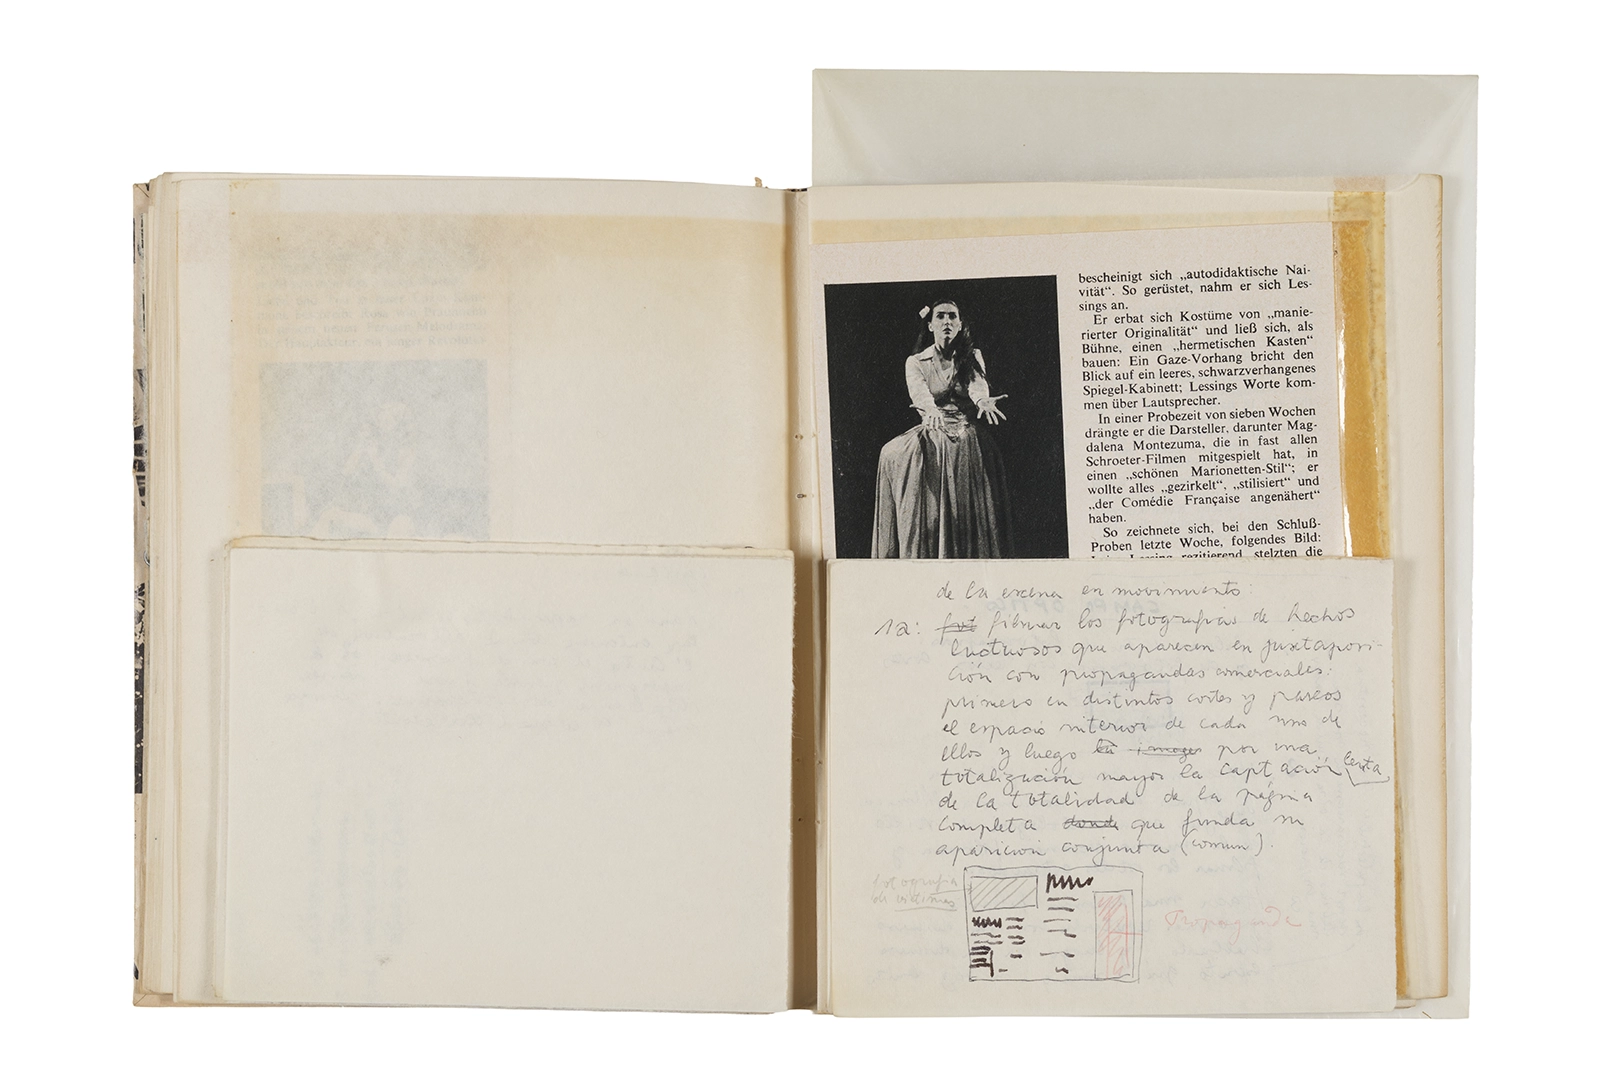 bescheinigt sich „autodidaktische Nai-
vität“. So gerüstet, nahm er sich Les-
sings an.
Er erbat sich Kostüme von „manie-
rierter Originalität“ und ließ sich, als
Bühne, einen „hermetischen Kasten“
bauen: Ein Gaze-Vorhang bricht den
Blick auf ein leeres, schwarzverhangenes
Spiegel-Kabinett; Lessings Worte kom-
men über Lautsprecher.
In einer Probezeit von sieben Wochen
drängte er die Darsteller, darunter Mag-
dalena Montezuma, die in fast allen
Schroeter-Filmen mitgespielt hat, in
einen „schönen Marionetten-Stil“; er
wollte alles „gezirkelt“, „stilisiert“ und
„der Comédie Française angenähert“
haben.
So zeichnete sich, bei den Schluß-
Proben letzte Woche, folgendes Bild:
Lessing rezitierend, stelzten die
de la escena en movimiento:
1a: filmar las fotografias de hechos
luctuosos que aparecen en juxtaposi-
ción con propagandas comerciales:
primero en distintos cortes y paneos
el espacio interior de cada uno de
ellos y luego la imagen por una
totalización mayor la captación lenta
de la totalidad de la página
completa donde que funda su
aparicion conjunta (comun).
fotografia
de victimas
Propaganda